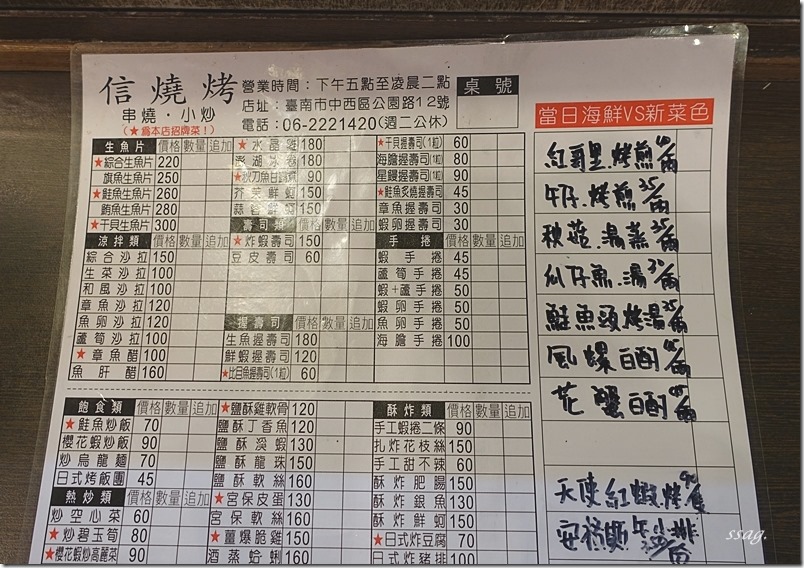 信燒烤
串燒・小炒
(★為本店招牌菜!)
營業時間：下午五點至凌晨二點
店址：臺南市中西區公園路12號
電話：06-2221420(週二公休)
桌號
生魚片 價格 數量 追加
★綜合生魚片 220
旗魚生魚片 250
★鮭魚生魚片 260
鮪魚生魚片 280
★干貝生魚片 300
涼拌類 價格 數量 追加
綜合沙拉 150
生菜沙拉 100
和風沙拉 100
章魚沙拉 120
魚卵沙拉 120
蘆筍沙拉 100
★章魚醋 100
魚肝醋 160
★水晶雞 180
澎湖冰卷 180
90
芥茉鮮蚵 150
蒜蓉鮮蚵 150
壽司類
★炸蝦壽司 150
豆皮壽司 60
握壽司 價格 數量 追加
生魚握壽司 180
鮮蝦握壽司 120
★比目魚握壽司(1粒) 60
★干貝握壽司(1粒) 60
海膽握壽司(1粒) 80
星鰻握壽司 90
★鮭魚炙燒握壽司 45
章魚握壽司 30
蝦卵握壽司 30
手捲 價格 數量 追加
蝦手捲 45
蘆筍手捲 45
蝦+蘆手捲 50
蝦卵手捲 50
魚卵手捲 50
海膽手捲 100
飽食類 價格 數量 追加
★鮭魚炒飯 70
櫻花蝦炒飯 90
炒烏龍麵 70
日式烤飯團 45
熱炒類 價格 數量 追加
炒空心菜 60
★炒碧玉筍 80
★櫻花蝦炒高麗菜 90
★鹽酥雞軟骨 120
鹽酥丁香魚 120
鹽酥溪蝦 130
鹽酥龍珠 150
鹽酥軟絲 160
★宮保皮蛋 130
宮保軟絲 160
★薑爆脆雞 150
酒蒸蛤蜊 160
酥炸類 價格 數量 追加
手工蝦捲二條 90
扎炸花枝絲 150
手工甜不辣 60
酥炸肥腸 150
酥炸銀魚 130
酥炸鮮蚵 150
★日式炸豆腐 70
日式炸豬排 100
當日海鮮VS新菜色
紅哥里.烤煎 /兩
午仔.烤煎 35/兩
秧菇.湯蒸 35/兩
瓜仔魚.湯 30/兩
鮭魚頭烤湯 25/兩
風螺白酌 /兩
花蟹白酌 /兩
天使紅蝦烤 90/隻
安格斯牛小排
ssag.